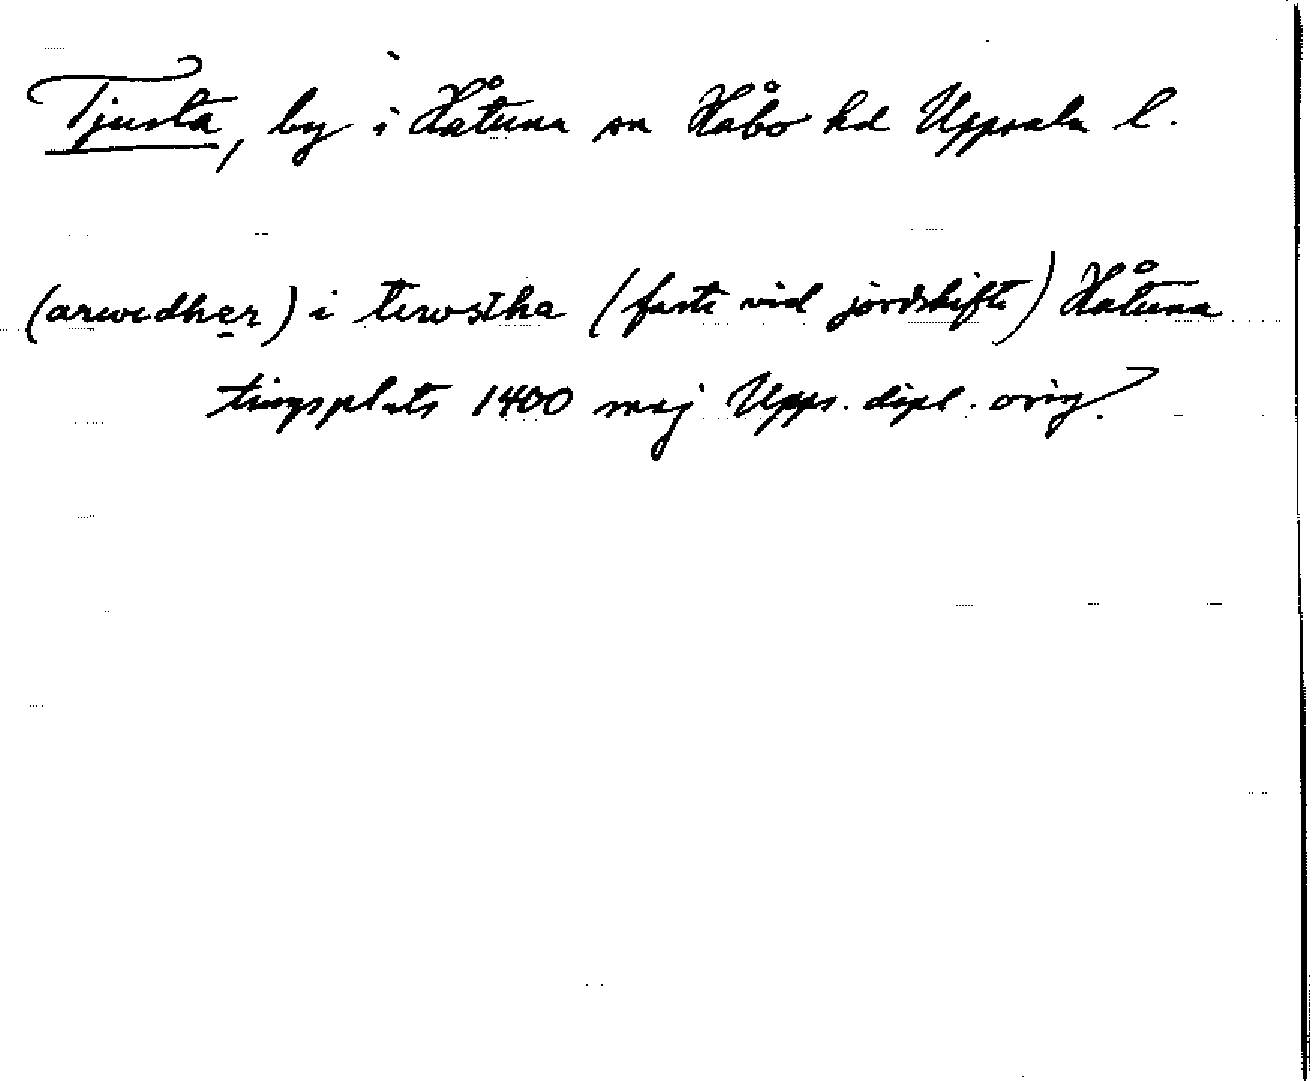 Tjusta, by i Håtuna sn Håbo hd Uppsala l.
(arwedher) i tiwstha (faste vid jordskifte) Håtuna
tingsplats 1400 maj Upps. dipl. orig.